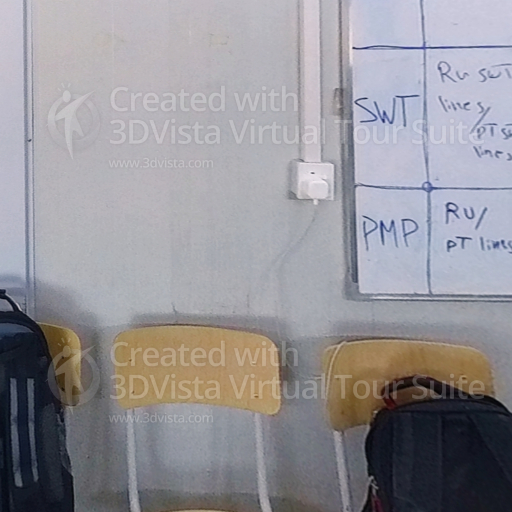 Created with
3DVista Virtual Tour Suite
www.3dvista.com
SWT
Ru SWT
lines/
PT SW
lines
PMP
RU/
PT lines
Created with
3DVista Virtual Tour Suite
www.3dvista.com